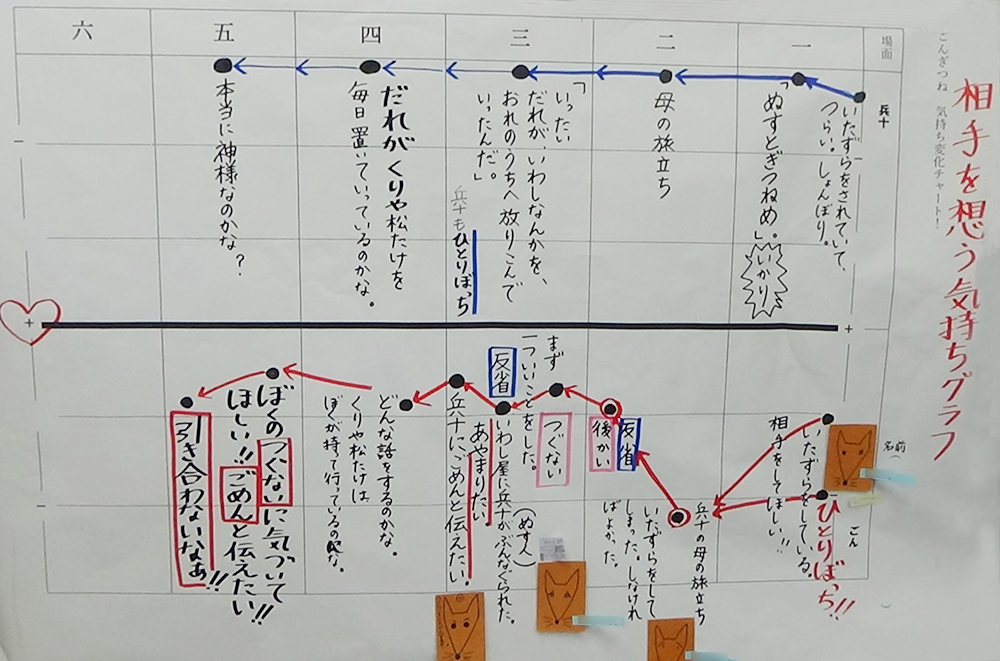 相手を想う気持ちグラフ
ごんぎつね 気持ち変化チャート!
場面
一
二
三
四
五
六
兵十
いたずらをされていて、
つらい。しょんぼり。
「ぬすとぎつねめ。」
いかり
母の旅立ち
「いったい
だれが、いわしなんかを、
おれのうちへ放りこんで
いったんだ。」
兵十もひとりぼっち
だれがくりや松たけを
毎日置いていっているのかな。
本当に神様なのかな?
+
+
名前
ごん
ひとりぼっち!!
いたずらをしている。
相手をしてほしい!!
兵十の母の旅立ち
いたずらをして
しまった。しなけれ
ばよかった。
反省
後かい
つぐない
まず
一ついいことをした。
反省
いわし屋に兵十がぶんなぐられた。
(ぬす人)
あやまりたい
兵十にごめんと伝えたい。
どんな話をするのかな。
くりや松たけは
ぼくが持って行っているのにな。
ぼくのつぐないに気づいて
ほしい!!ごめんと伝えたい!!
引き合わないなぁ!!